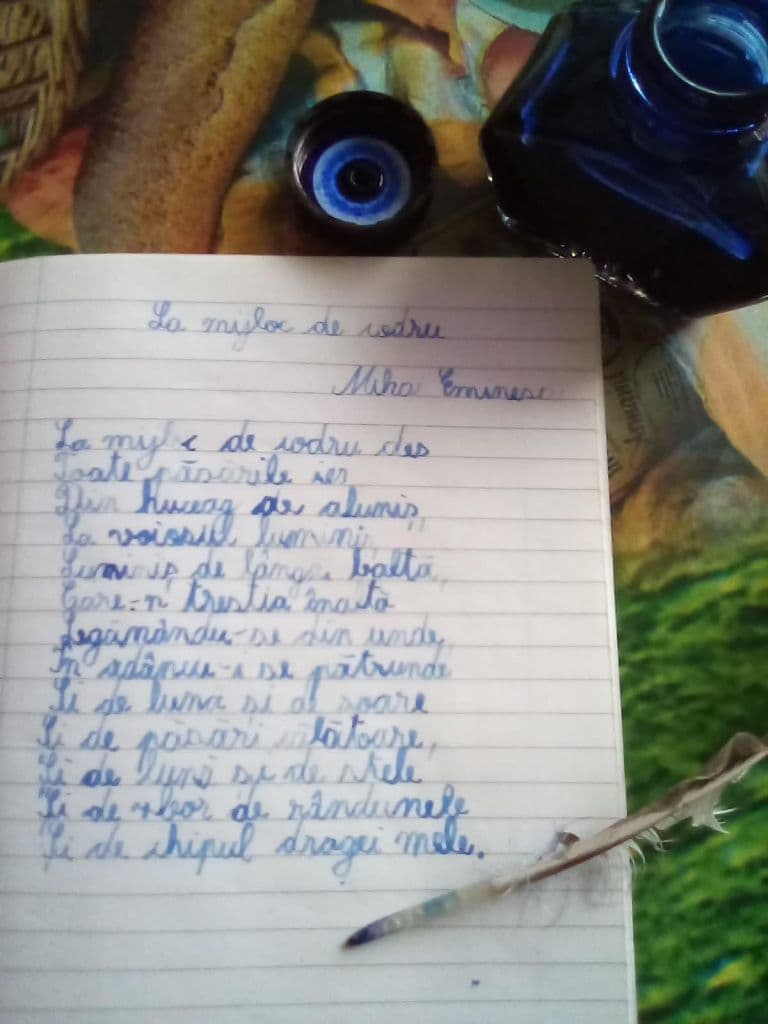 La mijloc de codru
Mihai Eminescu
La mijloc de codru des
Toate păsările ies
Din huceag de aluniș,
La voiosul luminiș,
Luminiș de lângă baltă,
Care-n trestia înaltă
Legănându-se din unde,
În adâncu-i se pătrunde
Și de lună și de soare
Și de păsări călătoare,
Și de lună și de stele
Și de zbor de rândunele
Și de chipul dragei mele.